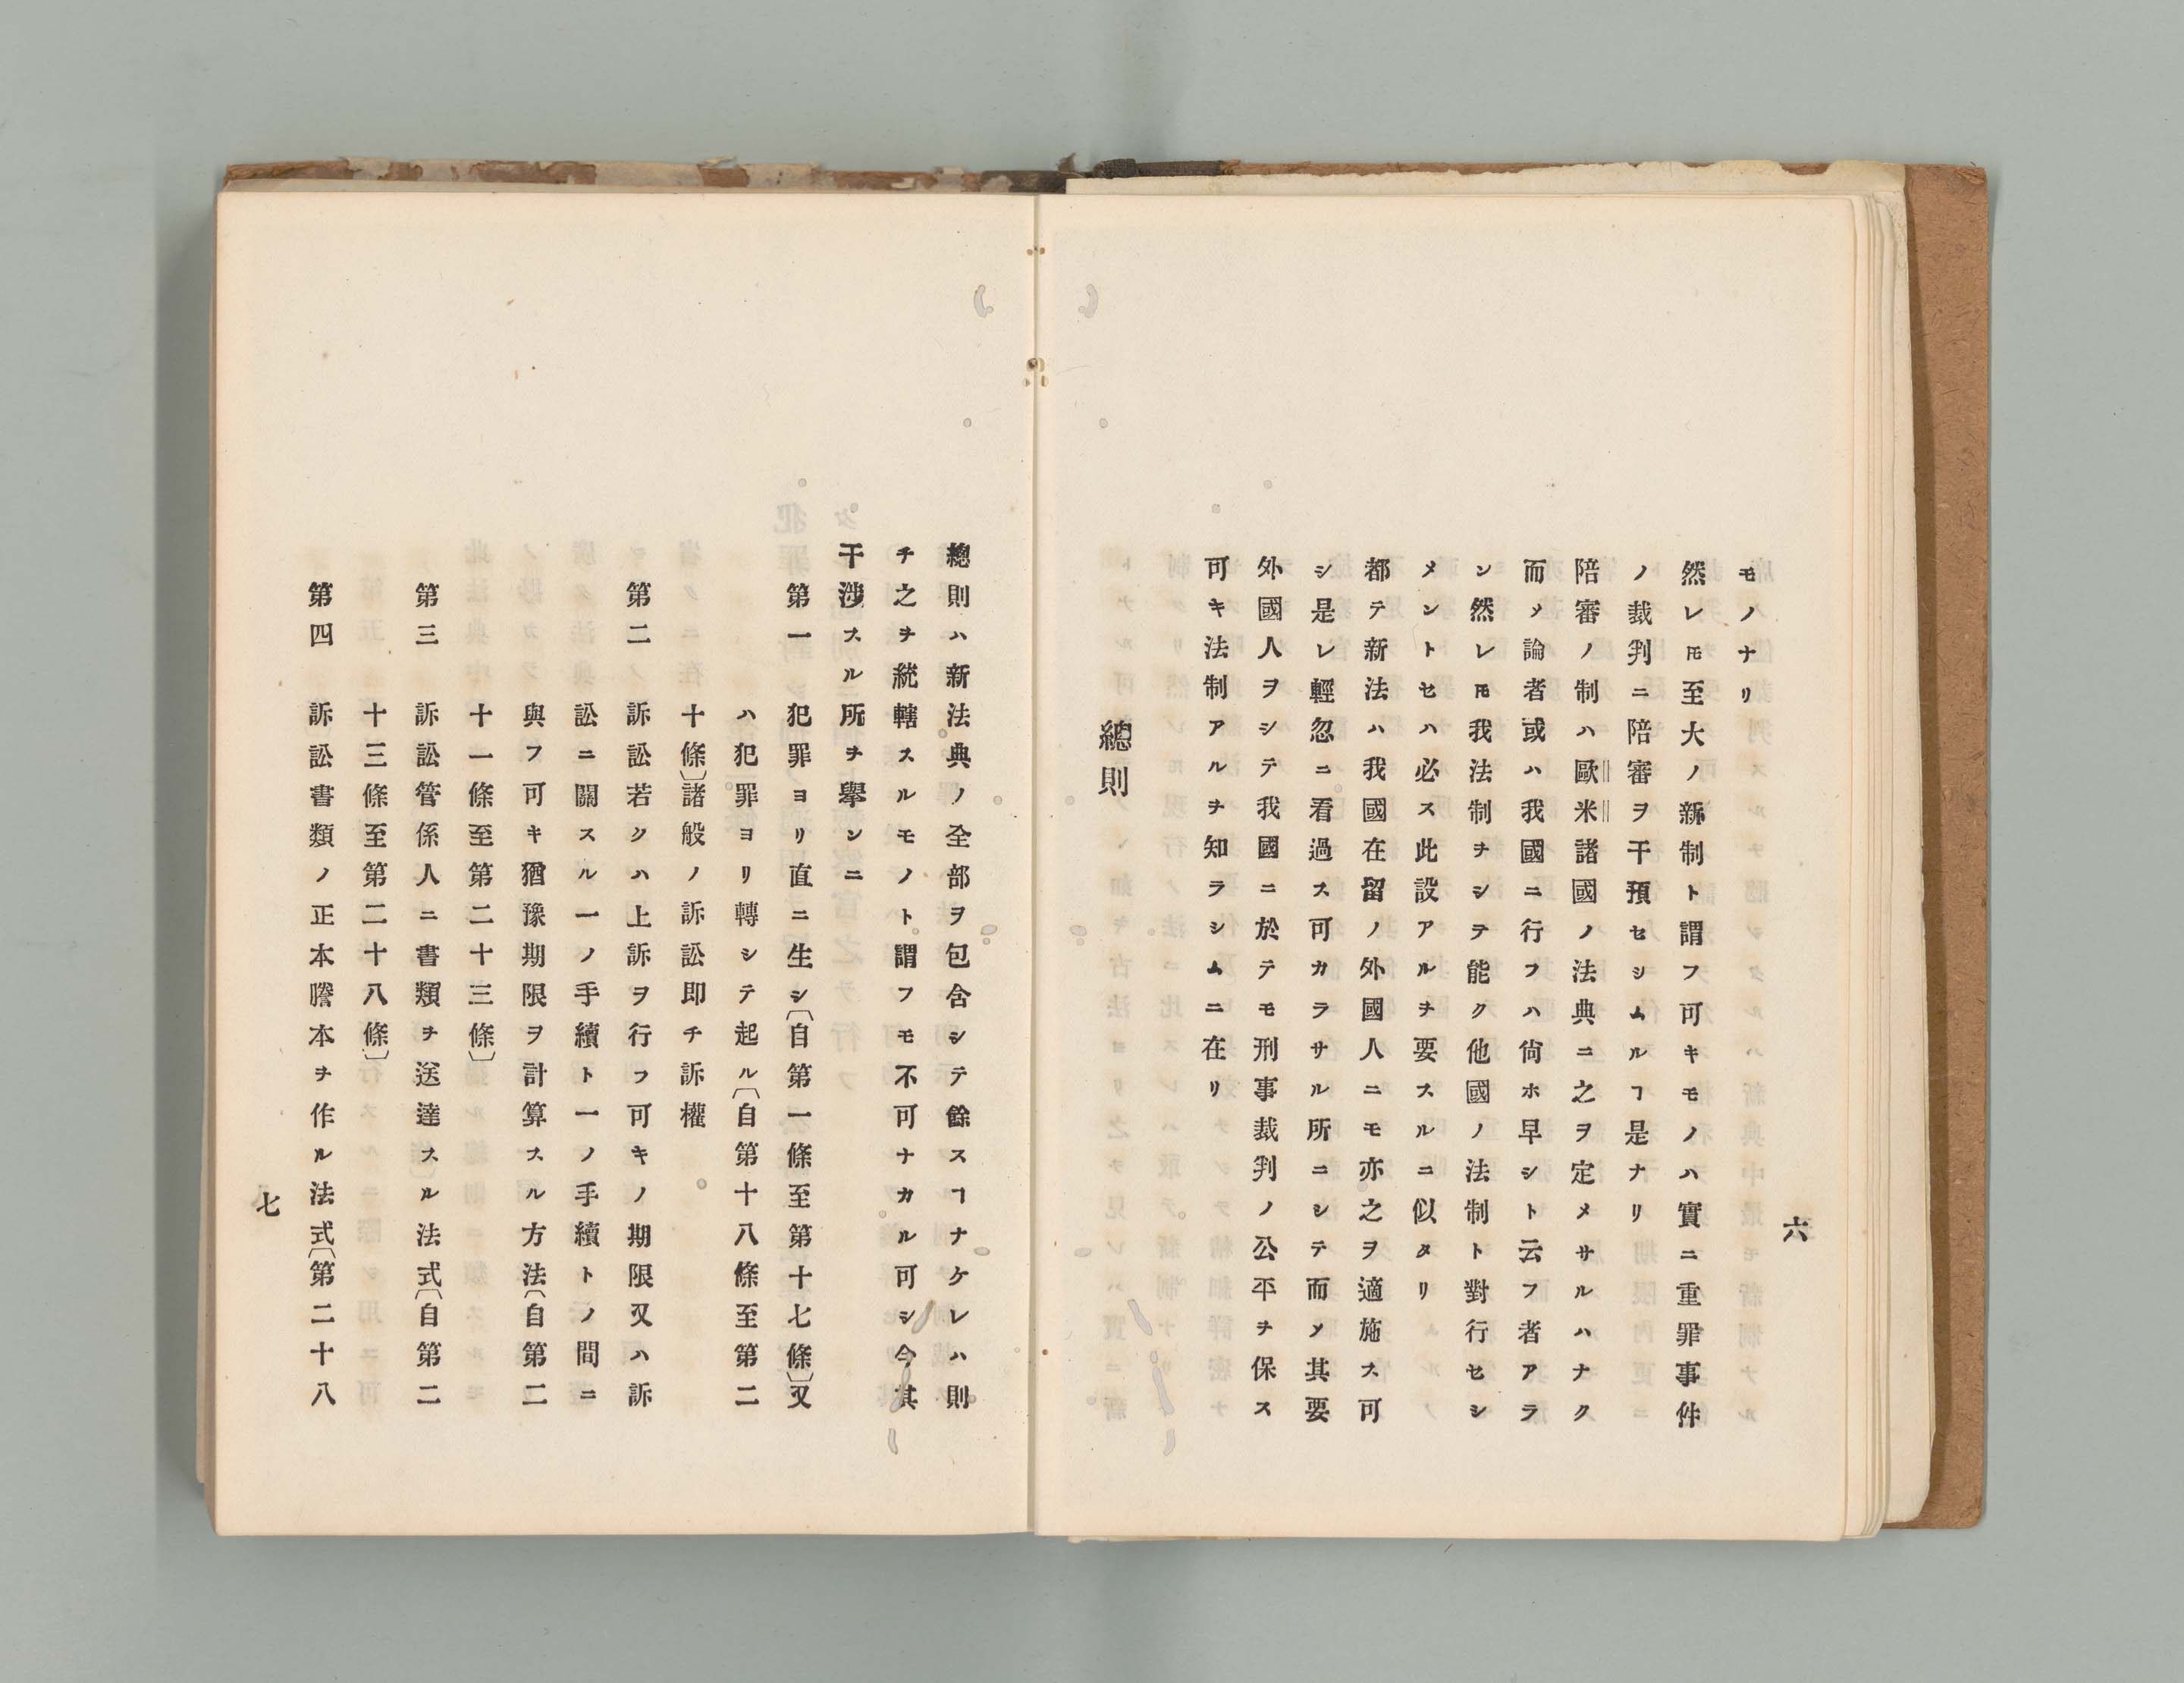 六
モノナリ
然レ𪜈至大ノ新制ト謂フ可キモノハ實ニ重罪事件
ノ裁判ニ陪審ヲ干預セシムルヿ是ナリ
陪審ノ制ハ歐米諸國ノ法典ニ之ヲ定メサルハナク
而〆論者或ハ我國ニ行フハ尙ホ早シト云フ者アラ
ン然レ𪜈我法制ヲシテ能ク他國ノ法制ト對行セシ
メントセハ必ス此設アルヲ要スルニ似タリ
都テ新法ハ我國在留ノ外國人ニモ亦之ヲ適施ス可
シ是レ輕忽ニ看過ス可カラサル所ニシテ而〆其要
外國人ヲシテ我國ニ於テモ刑事裁判ノ公平ヲ保ス
可キ法制アルヲ知ラシムニ在リ
總則
總則ハ新法典ノ全部ヲ包含シテ餘スヿナケレハ則
チ之ヲ統轄スルモノト謂フモ不可ナカル可シ今其
干渉スル所ヲ擧ンニ
第一 犯罪ヨリ直ニ生シ〔自第一條至第十七條〕又
ハ犯罪ヨリ轉シテ起ル〔自第十八條至第二
十條〕諸般ノ訴訟即チ訴權
第二 訴訟若クハ上訴ヲ行フ可キノ期限又ハ訴
訟ニ關スル一ノ手續ト一ノ手續トノ間ニ
與フ可キ猶豫期限ヲ計算スル方法〔自第二
十一條至第二十三條〕
第三 訴訟管係人ニ書類ヲ送達スル法式〔自第二
十三條至第二十八條〕
第四 訴訟書類ノ正本謄本ヲ作ル法式〔第二十八
七